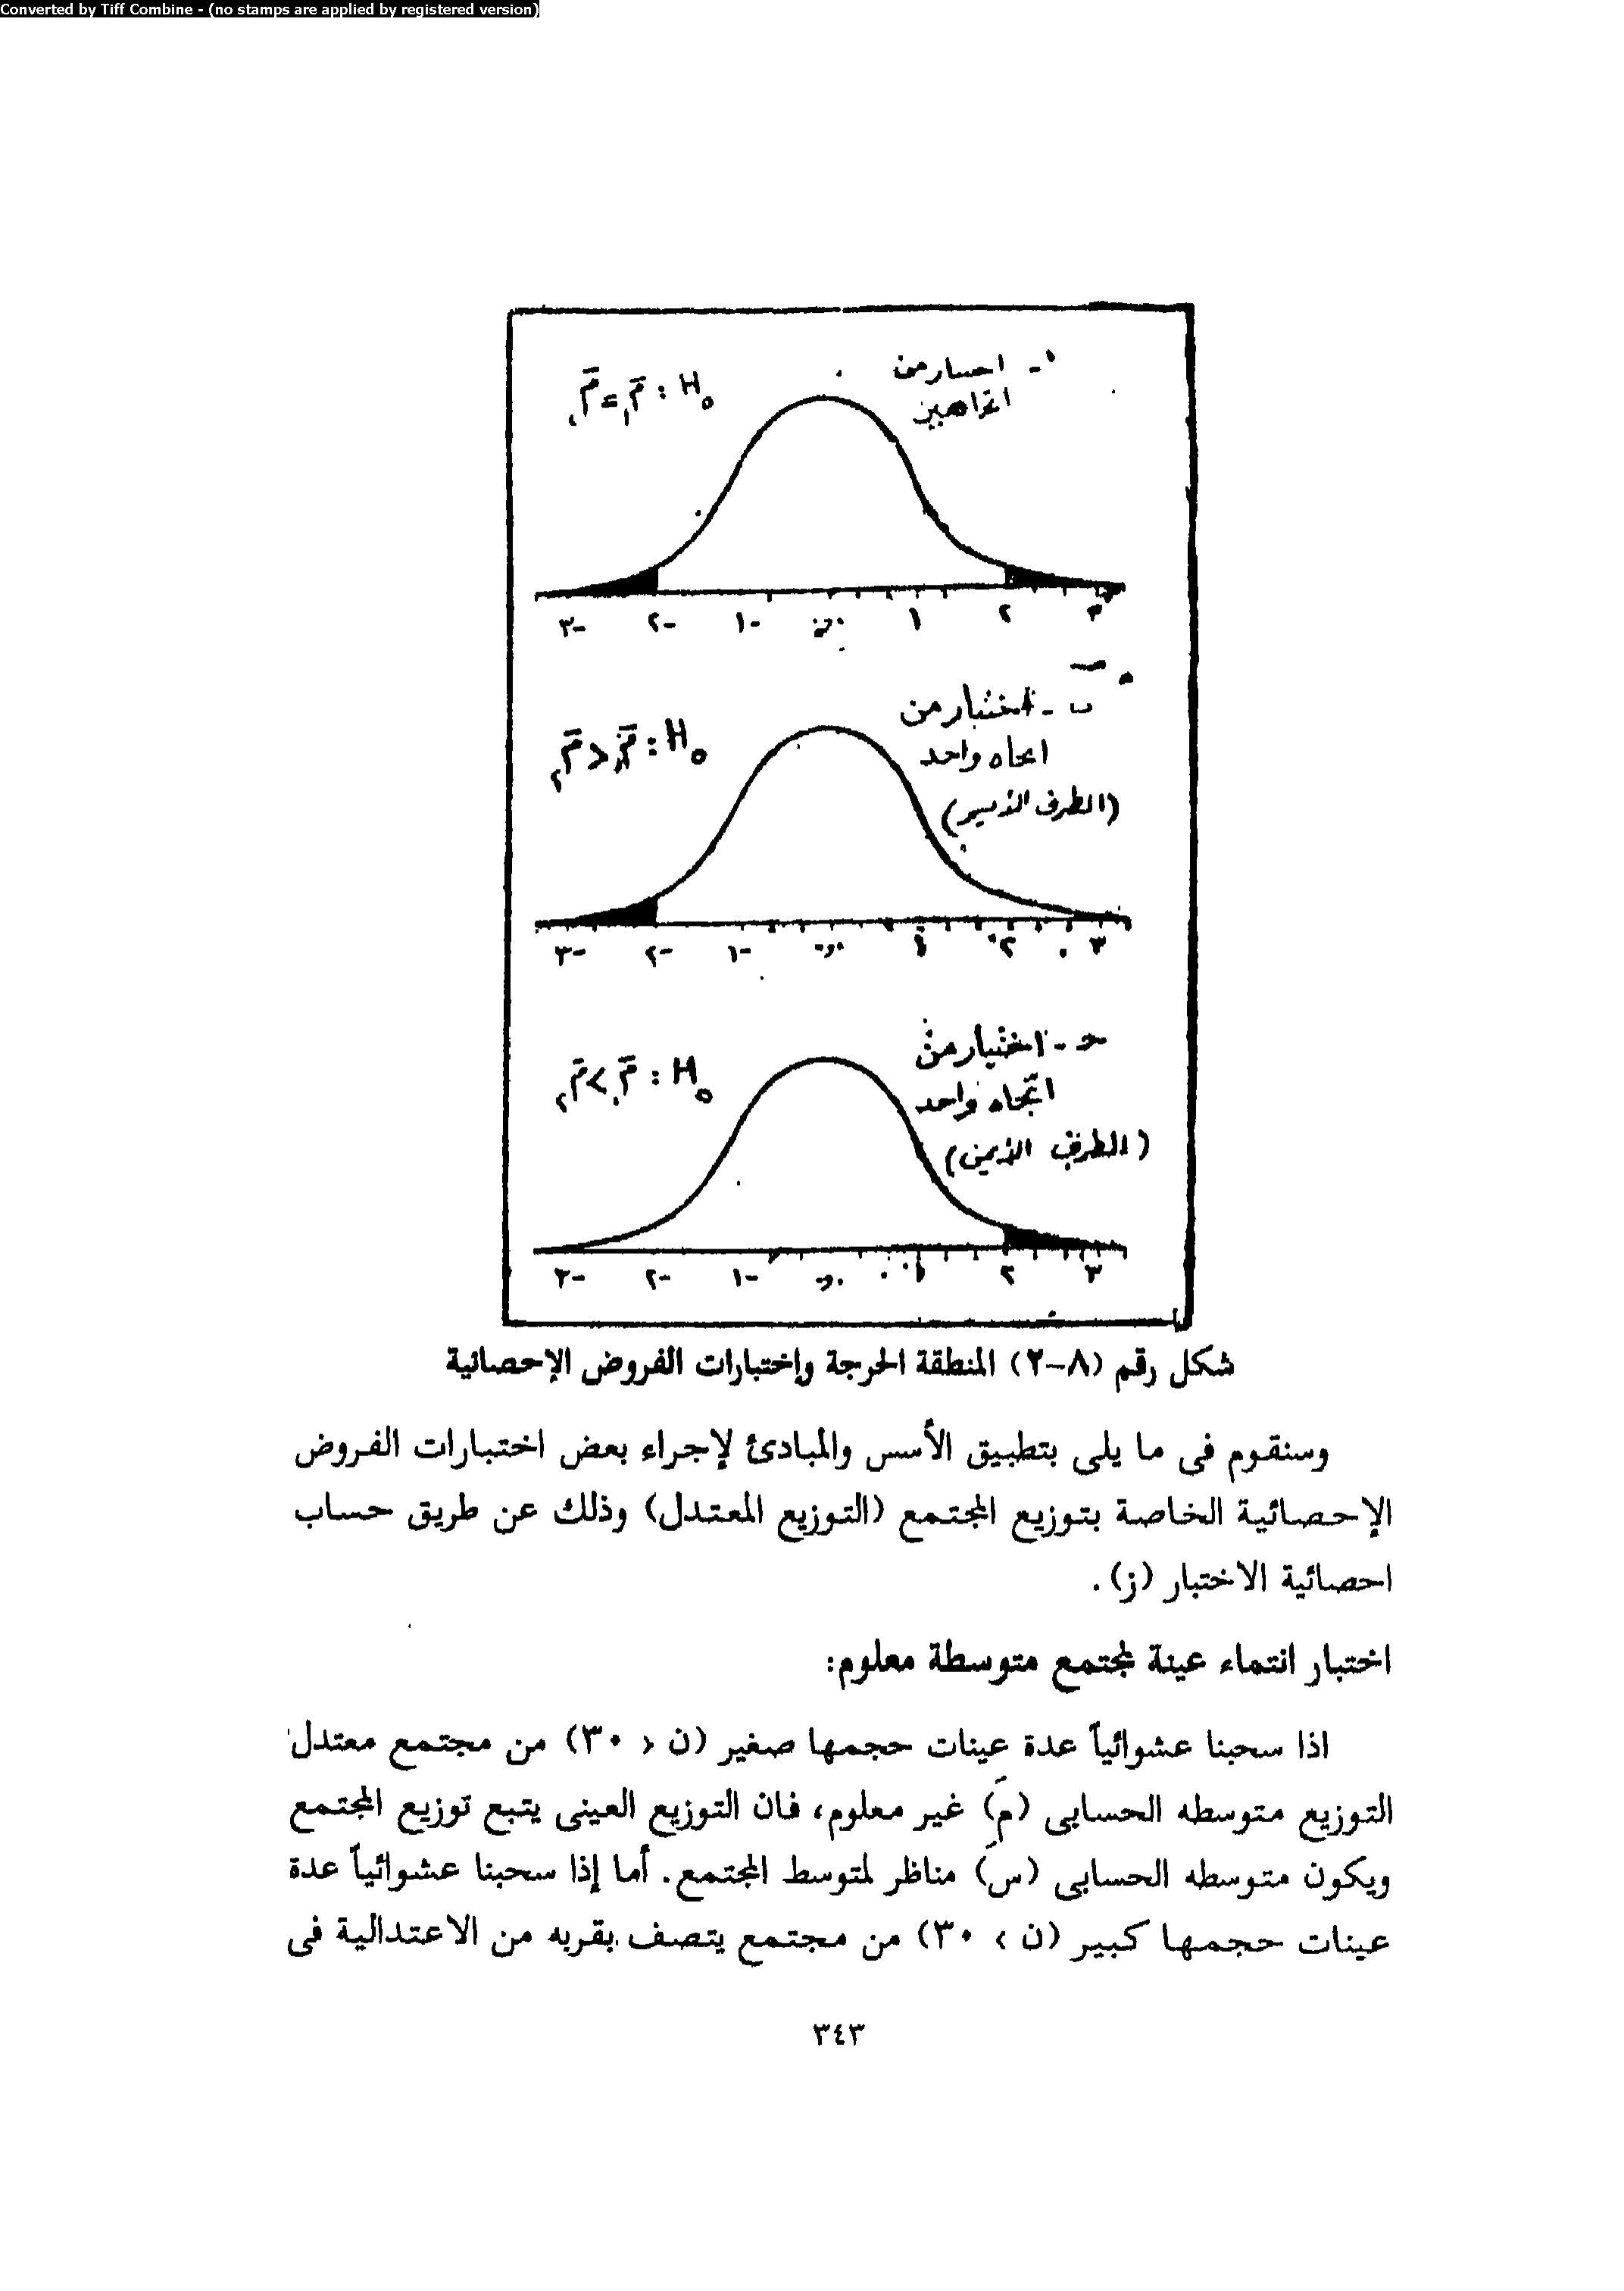 Converted by Tiff Combine - (no stamps are applied by registered version)
H₀ : م̄₁ = م̄₂
من
اتجاهين
٣- ٢- ١- ١ ٢ ٣
ب - اختبار من
اتجاه واحد
(الطرف الأيسر)
H₀ : م̄₁ > م̄₂
٣- ٢- ١- ١ ٢ ٣
حـ - اختبار من
اتجاه واحد
(الطرف الأيمن)
H₀ : م̄₁ < م̄₂
٣- ٢- ١- ١ ٢ ٣
شكل رقم (٨-٢) المنطقة الحرجة وإختبارات الفروض الإحصائية
وسنقوم فى ما يلى بتطبيق الأسس والمبادئ لإجراء بعض اختبارات الفروض
الإحصائية الخاصة بتوزيع المجتمع (التوزيع المعتدل) وذلك عن طريق حساب
احصائية الاختبار (ز).
اختبار انتماء عينة لمجتمع متوسطة معلوم:
اذا سحبنا عشوائياً عدة عينات حجمها صغير (ن < ٣٠) من مجتمع معتدل
التوزيع متوسطه الحسابى (مَ) غير معلوم، فان التوزيع العينى يتبع توزيع المجتمع
ويكون متوسطه الحسابى (سَ) مناظر لمتوسط المجتمع. أما إذا سحبنا عشوائياً عدة
عينات حجمها كبير (ن > ٣٠) من مجتمع يتصف بقربه من الاعتدالية فى
٣٤٣